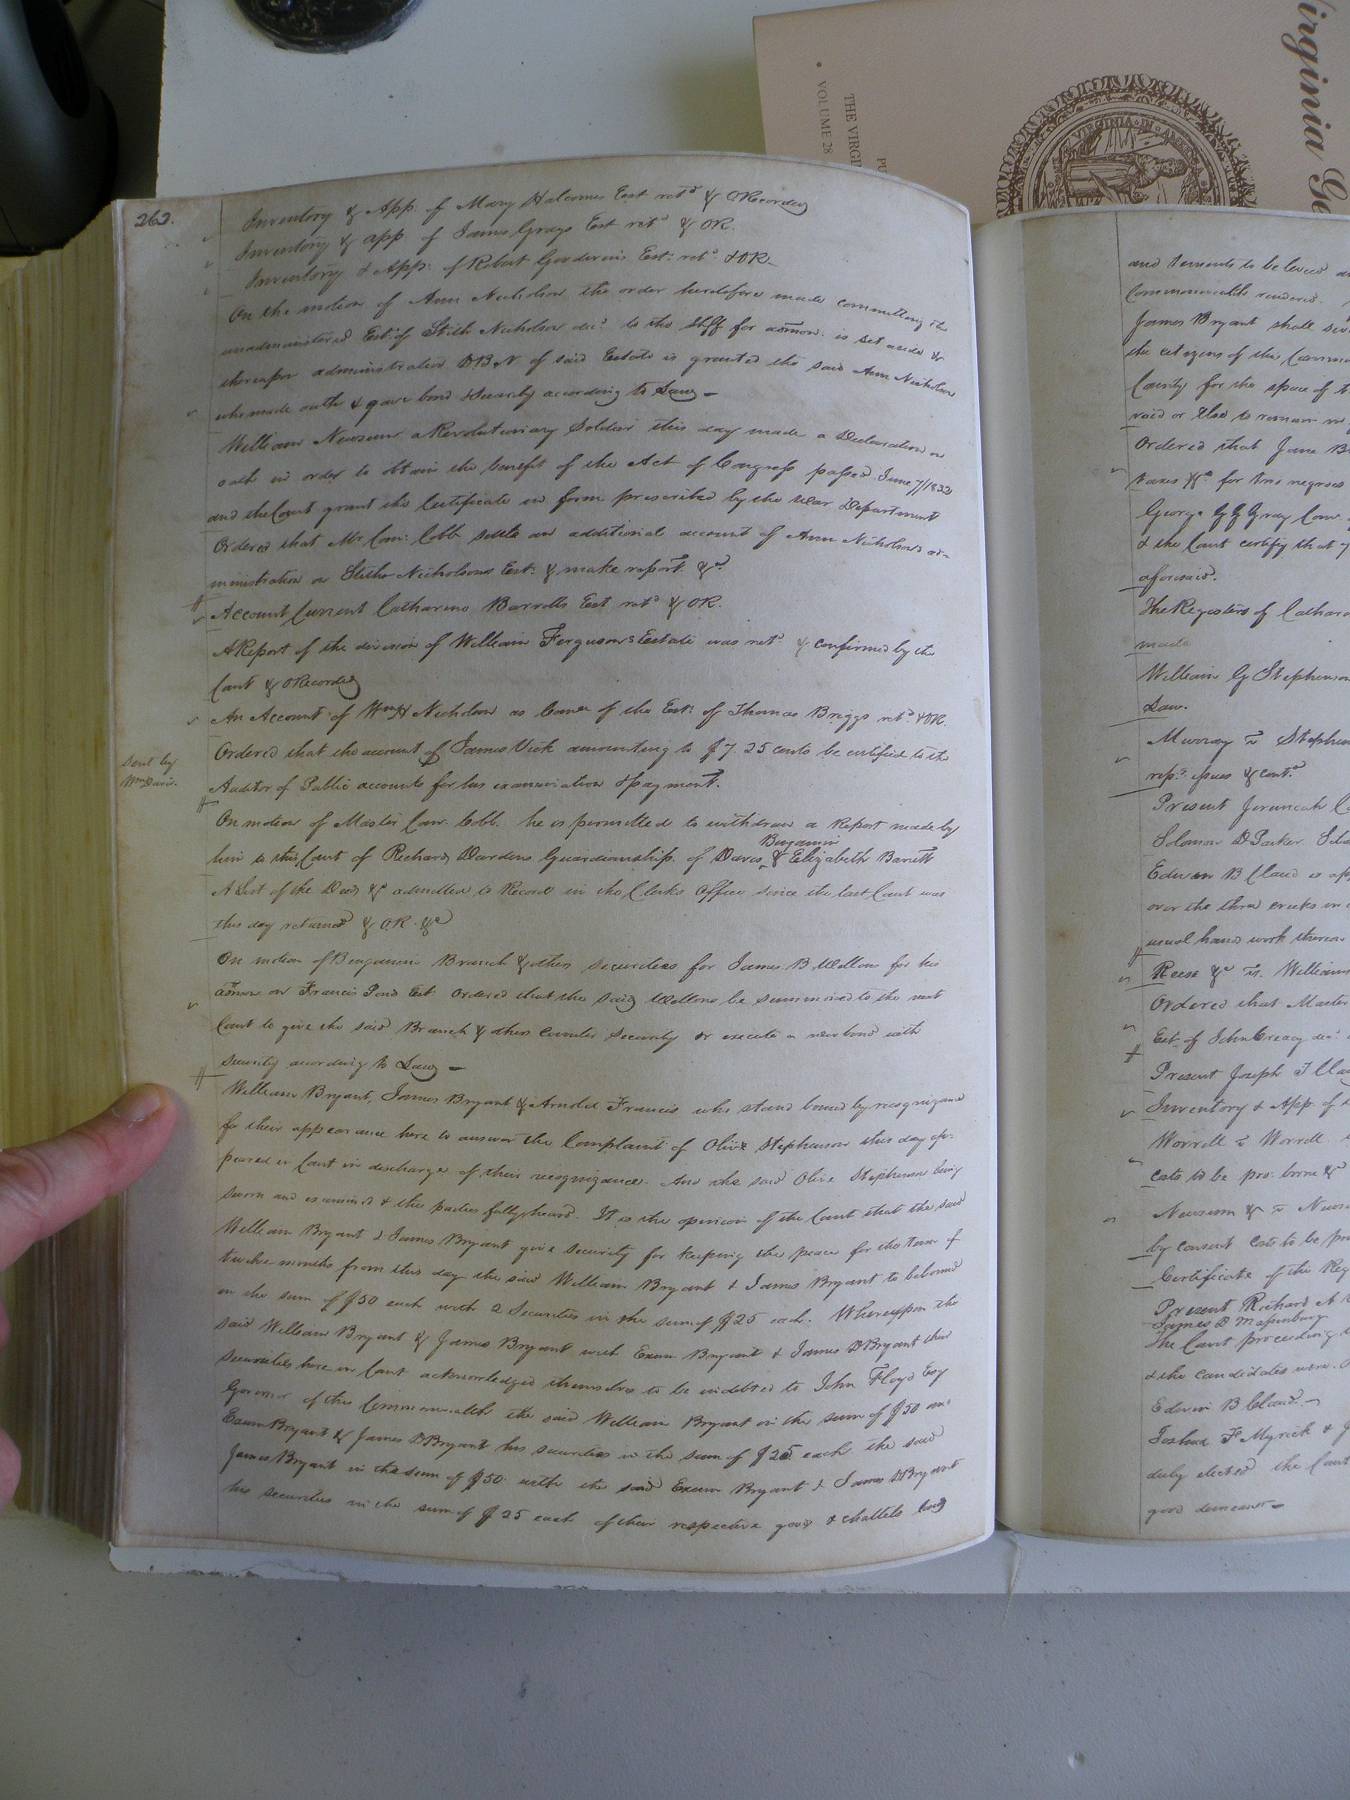 262.
Inventory & App. of Mary Holcomes Est ret.d & ORecorded
Inventory & app of James Grays Est ret.d & OR.
Inventory & App. of Robert Goodwins Est: ret.d & OR.
On the motion of Ann Nicholson the order heretofore made committing the
unadministered Est: of Stith Nicholson dec.d to the Shff for admon. is set aside &
thereupon administration DBN of said Estate is granted the said Ann Nicholson
who made oath & gave bond & Security according to Law
William Newsum a Revolutionary Soldier this day made a Declaration on
oath in order to obtain the benefit of the Act of Congress passed June 7// 1832
and the Court grant the Certificate in form prescribed by the War Department
Ordered that Mr Com: Cobb settle an additional account of Ann Nicholsons ad-
ministration on Stith Nicholsons Est: & make report &c.
Account Current Catharine Barretts Est ret.d & OR.
A Report of the division of William Fergusons Estate was ret.d & confirmed by the
Court & ORecorded
An Account of Wm H Nicholson as Comee of the Est: of Thomas Briggs ret.d & OR.
Ordered that the account of James Vick amounting to $7.25 cents be certified to the
Auditor of Public accounts for his examination & payment.
sent by
Wm Davis.
On motion of Master Com. Cobb. he is permitted to withdraw a Report made by
him to this Court of Richard Dardens Guardianship of Davis, Benjamin & Elizabeth Barrett
A List of the Deeds &c admitted to Record in the Clerks Office since the last Court was
this day returned & OR. &c
On motion of Benjamin Branch & others securities for James B Wellons for his
admon on Francis Pond Est. Ordered that the said Wellons be summoned to the next
Court to give the said Branch & others Counter Security or execute a new bond with
security according to Law
William Bryant, James Bryant & Arnold Francis who stand bound by recognizance
for their appearance here to answer the Complaint of Olive Stephenson this day ap-
peared in Court in discharge of their recognizance. And the said Olive Stephenson being
sworn and examined & the parties fully heard. It is the opinion of the Court that the said
William Bryant & James Bryant give security for keeping the peace for the term of
twelve months from this day the said William Bryant & James Bryant to be bound
in the sum of $50 each with 2 Securities in the sum of $25 each. Whereupon the
said William Bryant & James Bryant with Exum Bryant & James D Bryant their
securities here in Court acknowledged themselves to be indebted to John Floyd Esq
Governor of this Commonwealth the said William Bryant in the sum of $50 and
Exum Bryant & James D Bryant his securities in the sum of $25 each the said
James Bryant in the sum of $50 with the said Exum Bryant & James D Bryant
his securities in the sum of $25 each of their respective goods & chattels lands
and tenements to be levied
Commonwealth rendered.
James Bryant shall
the citizens of the
County for the space of
void or else to remain
Ordered that Jane
taxes &c for two negroes
George Gray Com.
& the Court certify that
aforesaid.
The Registers of
made
William G Stephenson
Law.
Murray vs Stephen
rep.n issue & cont.d
Present Jeremiah
Solomon D Parker.
Edwin B Claud is
over the three creeks in
usual hand work thereon
Reese &c vs. Williams
Ordered that Master
Est. of John Creacy dec.d
Present Joseph T
Inventory & App. of
Worrell vs Worrell
costs to be pro: borne &
Newsum & vs
by consent costs to be
Certificate of the Reg
Present Richard A
James D Massenburg
The Court proceeding
& the candidates were
Edwin B Claud.
Joshua F Myrick &
duly elected the Court
good demeanor
THE VIRGI
VOLUME 28
VIRGINIA IN
Virginia Ge